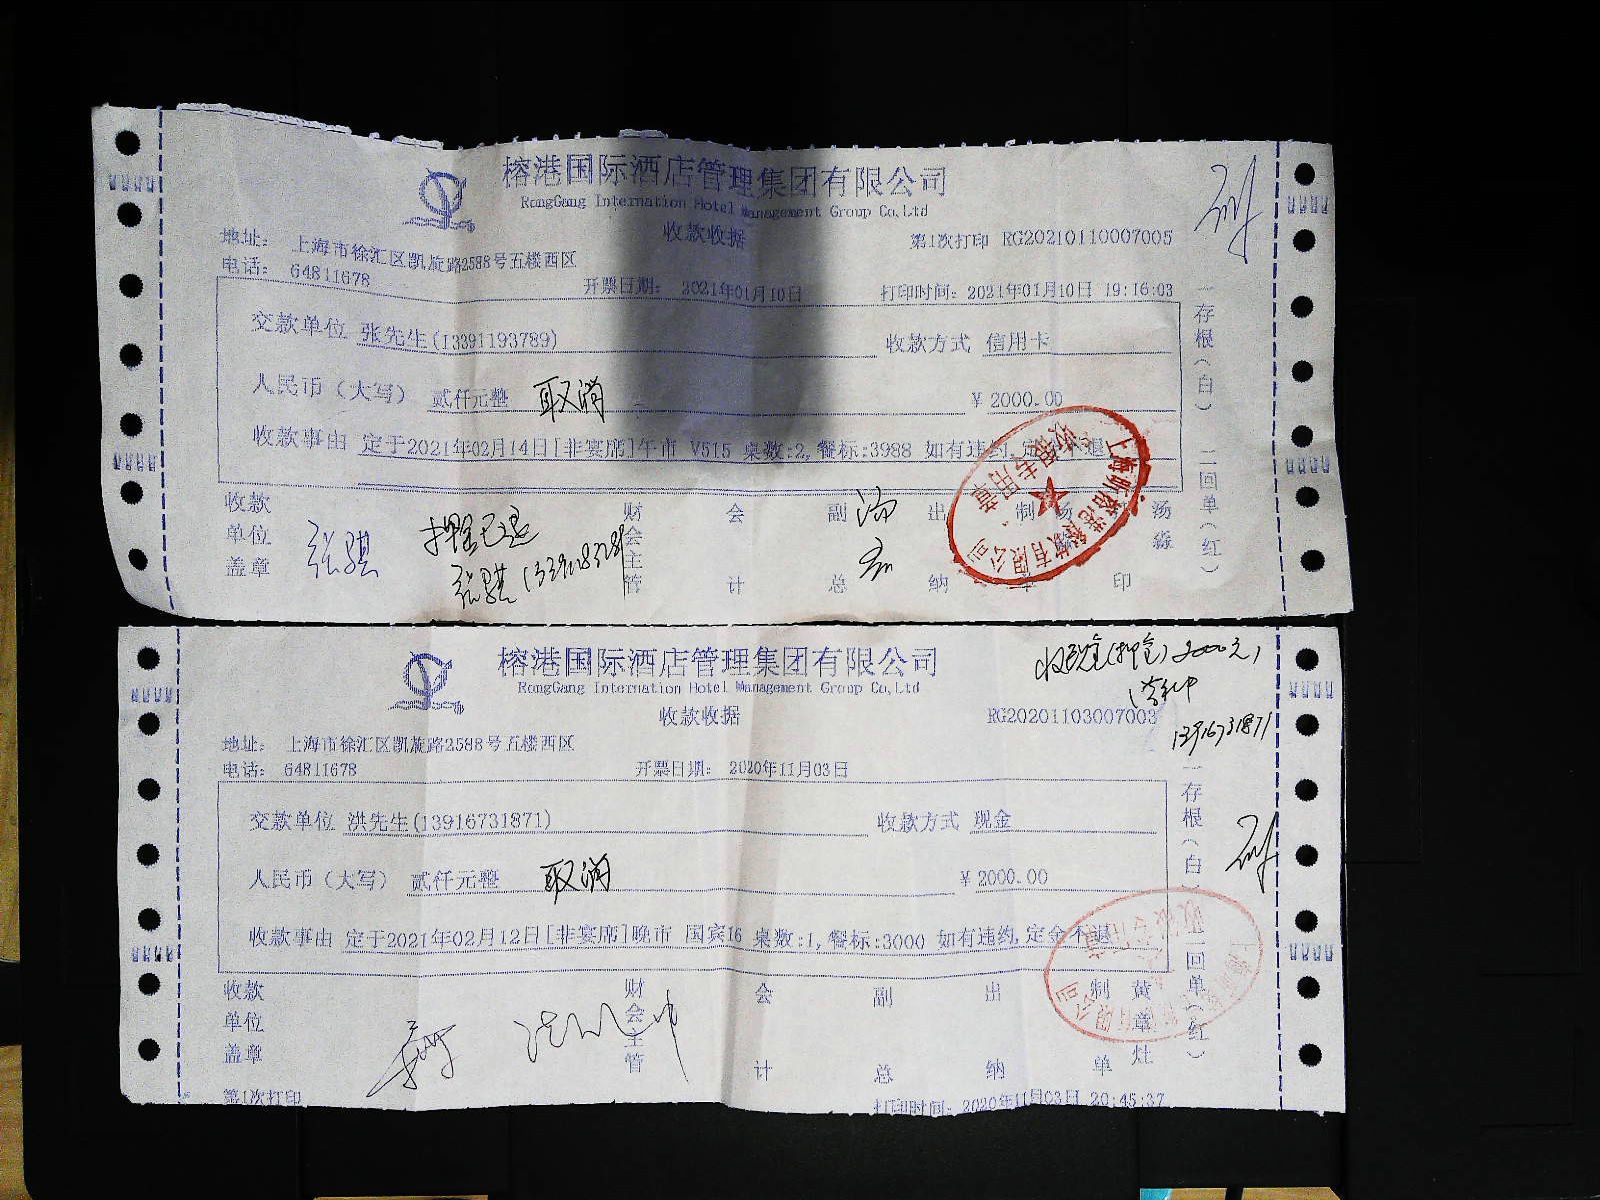 榕港国际酒店管理集团有限公司
RongGang Internation Hotel Management Group Co,Ltd
收款收据
第1次打印 RG20210110007005
地址： 上海市徐汇区凯旋路2588号五楼西区
电话： 64811678
开票日期： 2021年01月10日 打印时间：2021年01月10日 19:16:03
交款单位 张先生(13391193789) 收款方式 信用卡
人民币（大写） 贰仟元整 取消 ¥ 2000.00
收款事由 定于2021年02月14日[非宴席]午市 V515 桌数:2,餐标:3988 如有违约,定
收款单位盖章 张骐 押金已退 财会主管 会计 副总 出纳 制 汤淼
张骐
印
一存根（白） 二回单（红）
收据专用章
榕港国际酒店管理集团有限公司
RongGang Internation Hotel Management Group Co,Ltd
收款收据
RG20201103007003
收现金(押金)2000元,
13916731871
地址： 上海市徐汇区凯旋路2588号五楼西区
电话： 64811678 开票日期： 2020年11月03日
交款单位 洪先生(13916731871) 收款方式 现金
人民币（大写） 贰仟元整 取消 ¥ 2000.00
收款事由 定于2021年02月12日[非宴席]晚市 国宾16 桌数:1,餐标:3000 如有违约,定金不退
收款单位盖章 财会主管 会计 副总 出纳 制单 黄章灶
一存根（白） 二回单（红）
第1次打印 打印时间：2020年11月03日 20:45:37